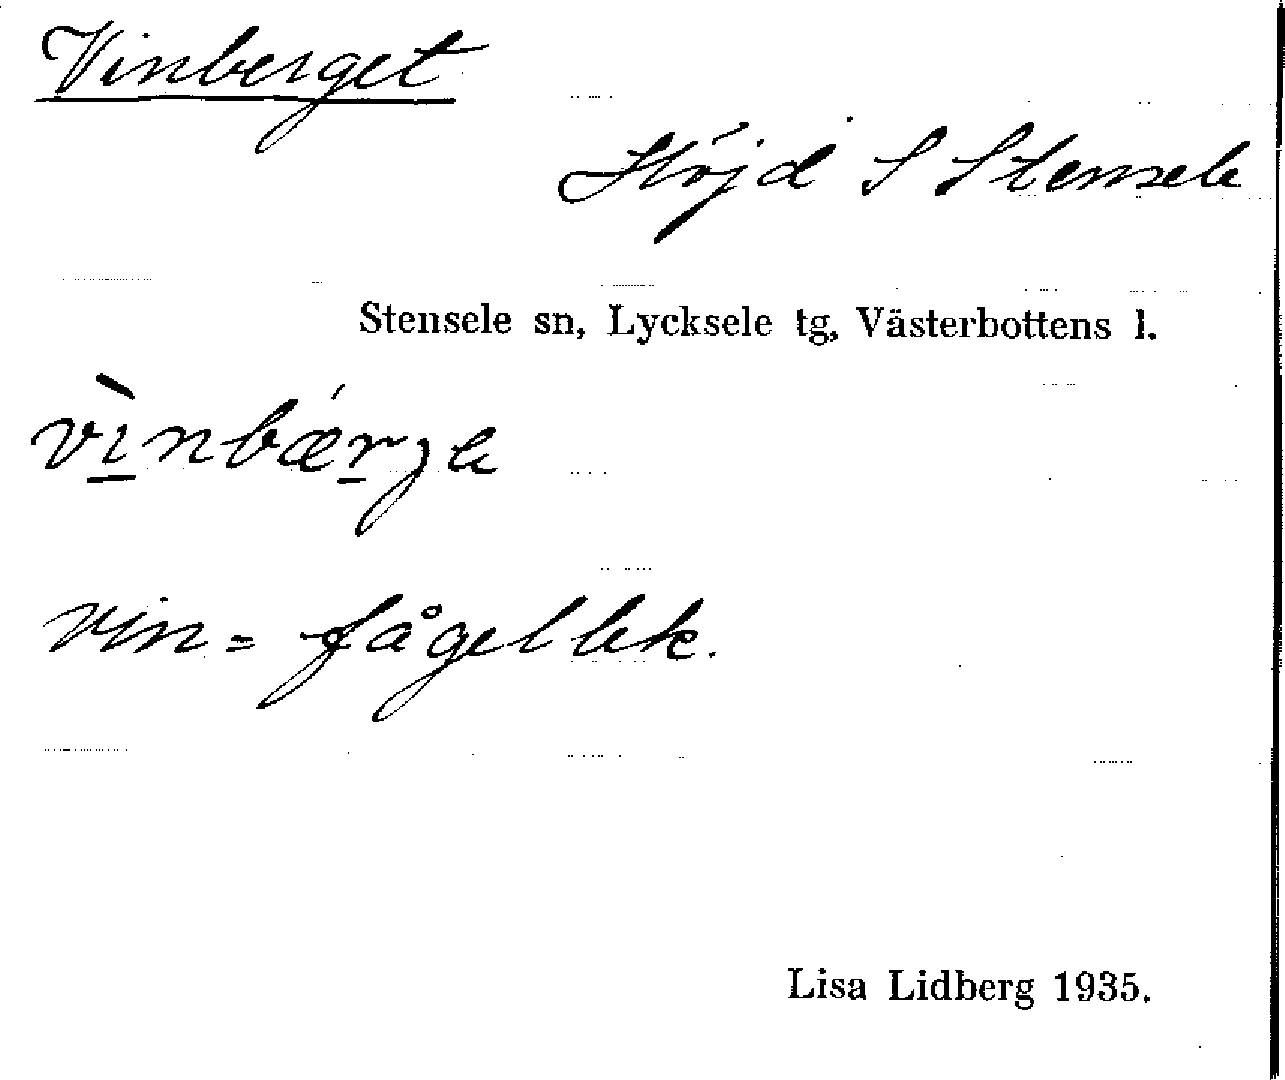 Vinberget
Höjd S Stensele
Stensele sn, Lycksele tg, Västerbottens l.
vìnbǽrje
vin = fågellek.
Lisa Lidberg 1935.